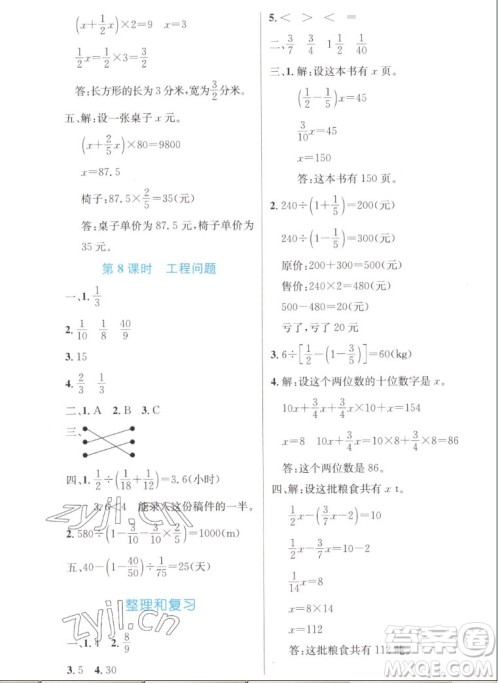 (x+1/2x)×2=9
x=3
1/2x=3/2
答:长方形的长为3分米,宽为3/2分米。
五、解:设一张桌子x元。
(x+2/5x)×80=9800
x=87.5
椅子:87.5×2/5=35(元)
答:桌子单价为87.5元,椅子单价为
35元。
第8课时 工程问题
一、1. 1/3
2. 1/10 1/8 40/9
3. 15
4. 2/3 1/3
二、1. A 2. B 3. C
三、
四、1. 1/2÷(1/18+1/12)=3.6(小时)
3.6<4 能录入这份稿件的一半。
2. 580÷(1-3/10-3/10×2/5)=1000(m)
五、40-(1-3/5)÷1/75=25(天)
整理和复习
一、1. 4 2. 8/9
3. 5 4. 30
5. < > < =
二、3/7 3/4 1 1/2 1/40
三、1. 解:设这本书有x页。
(1/2-1/5)x=45
3/10x=45
x=150
答:这本书有150页。
2. 240÷(1+1/5)=200(元)
240÷(1-1/5)=300(元)
原价:200+300=500(元)
售价:240×2=480(元)
500-480=20(元)
亏了,亏了20元
3. 6÷[1/2-(1-3/5)]=60(kg)
4. 解:设这个两位数的十位数字是x。
10x+3/4x+3/4x×10+x=154
x=8
答:这个两位数是86。
四、解:设这批粮食共有x t。
1/2x-(3/7x-2)=10
1/2x-3/7x+2=10
1/14x=8
x=8×14
x=112
答:这批粮食共有112吨。
zyjl.cn
zyjl.cn
答案圈
MXQE.COM